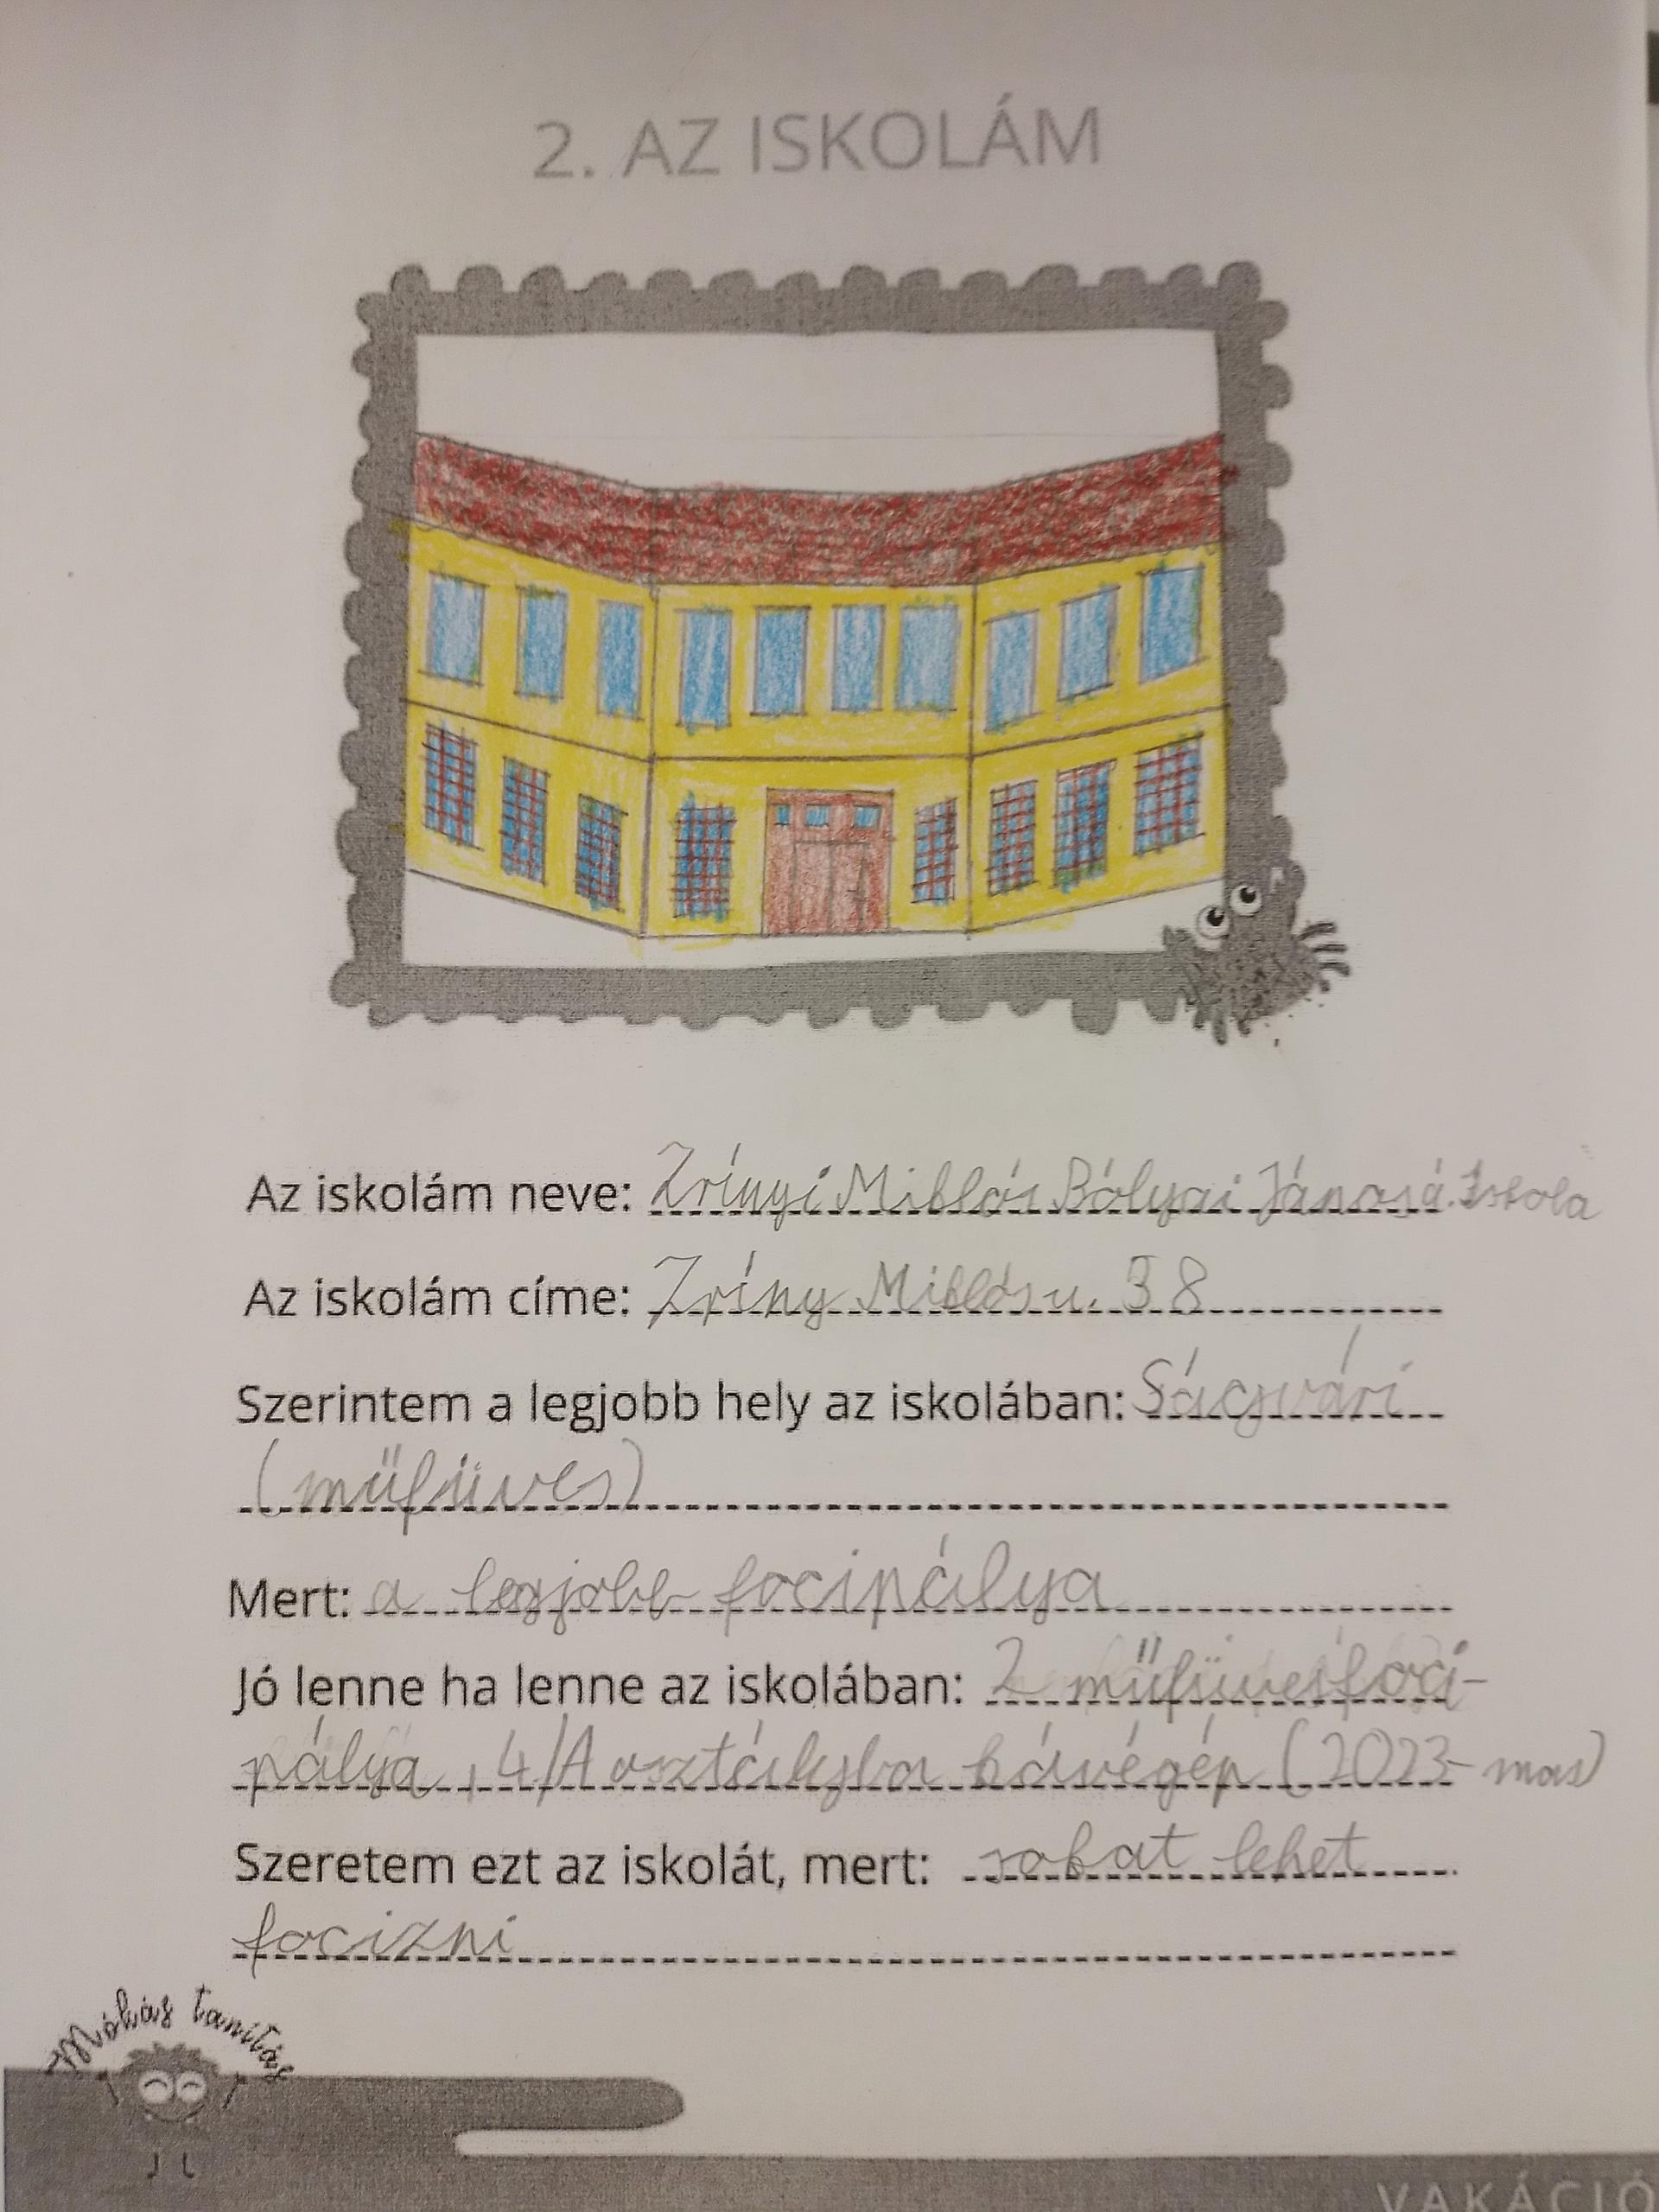 2. AZ ISKOLÁM
Az iskolám neve: Zrínyi Miklós Bólyai János á. Iskola
Az iskolám címe: Zríny Miklós u. 38
Szerintem a legjobb hely az iskolában: Ságvári
(műfüves)
Mert: a legjobb focipálya
Jó lenne ha lenne az iskolában: 2 műfüves foci-
pálya, 4/A osztályba kávégép (2023-mas)
Szeretem ezt az iskolát, mert: sokat lehet
focizni
Mókás tanítás
VAKÁCIÓ